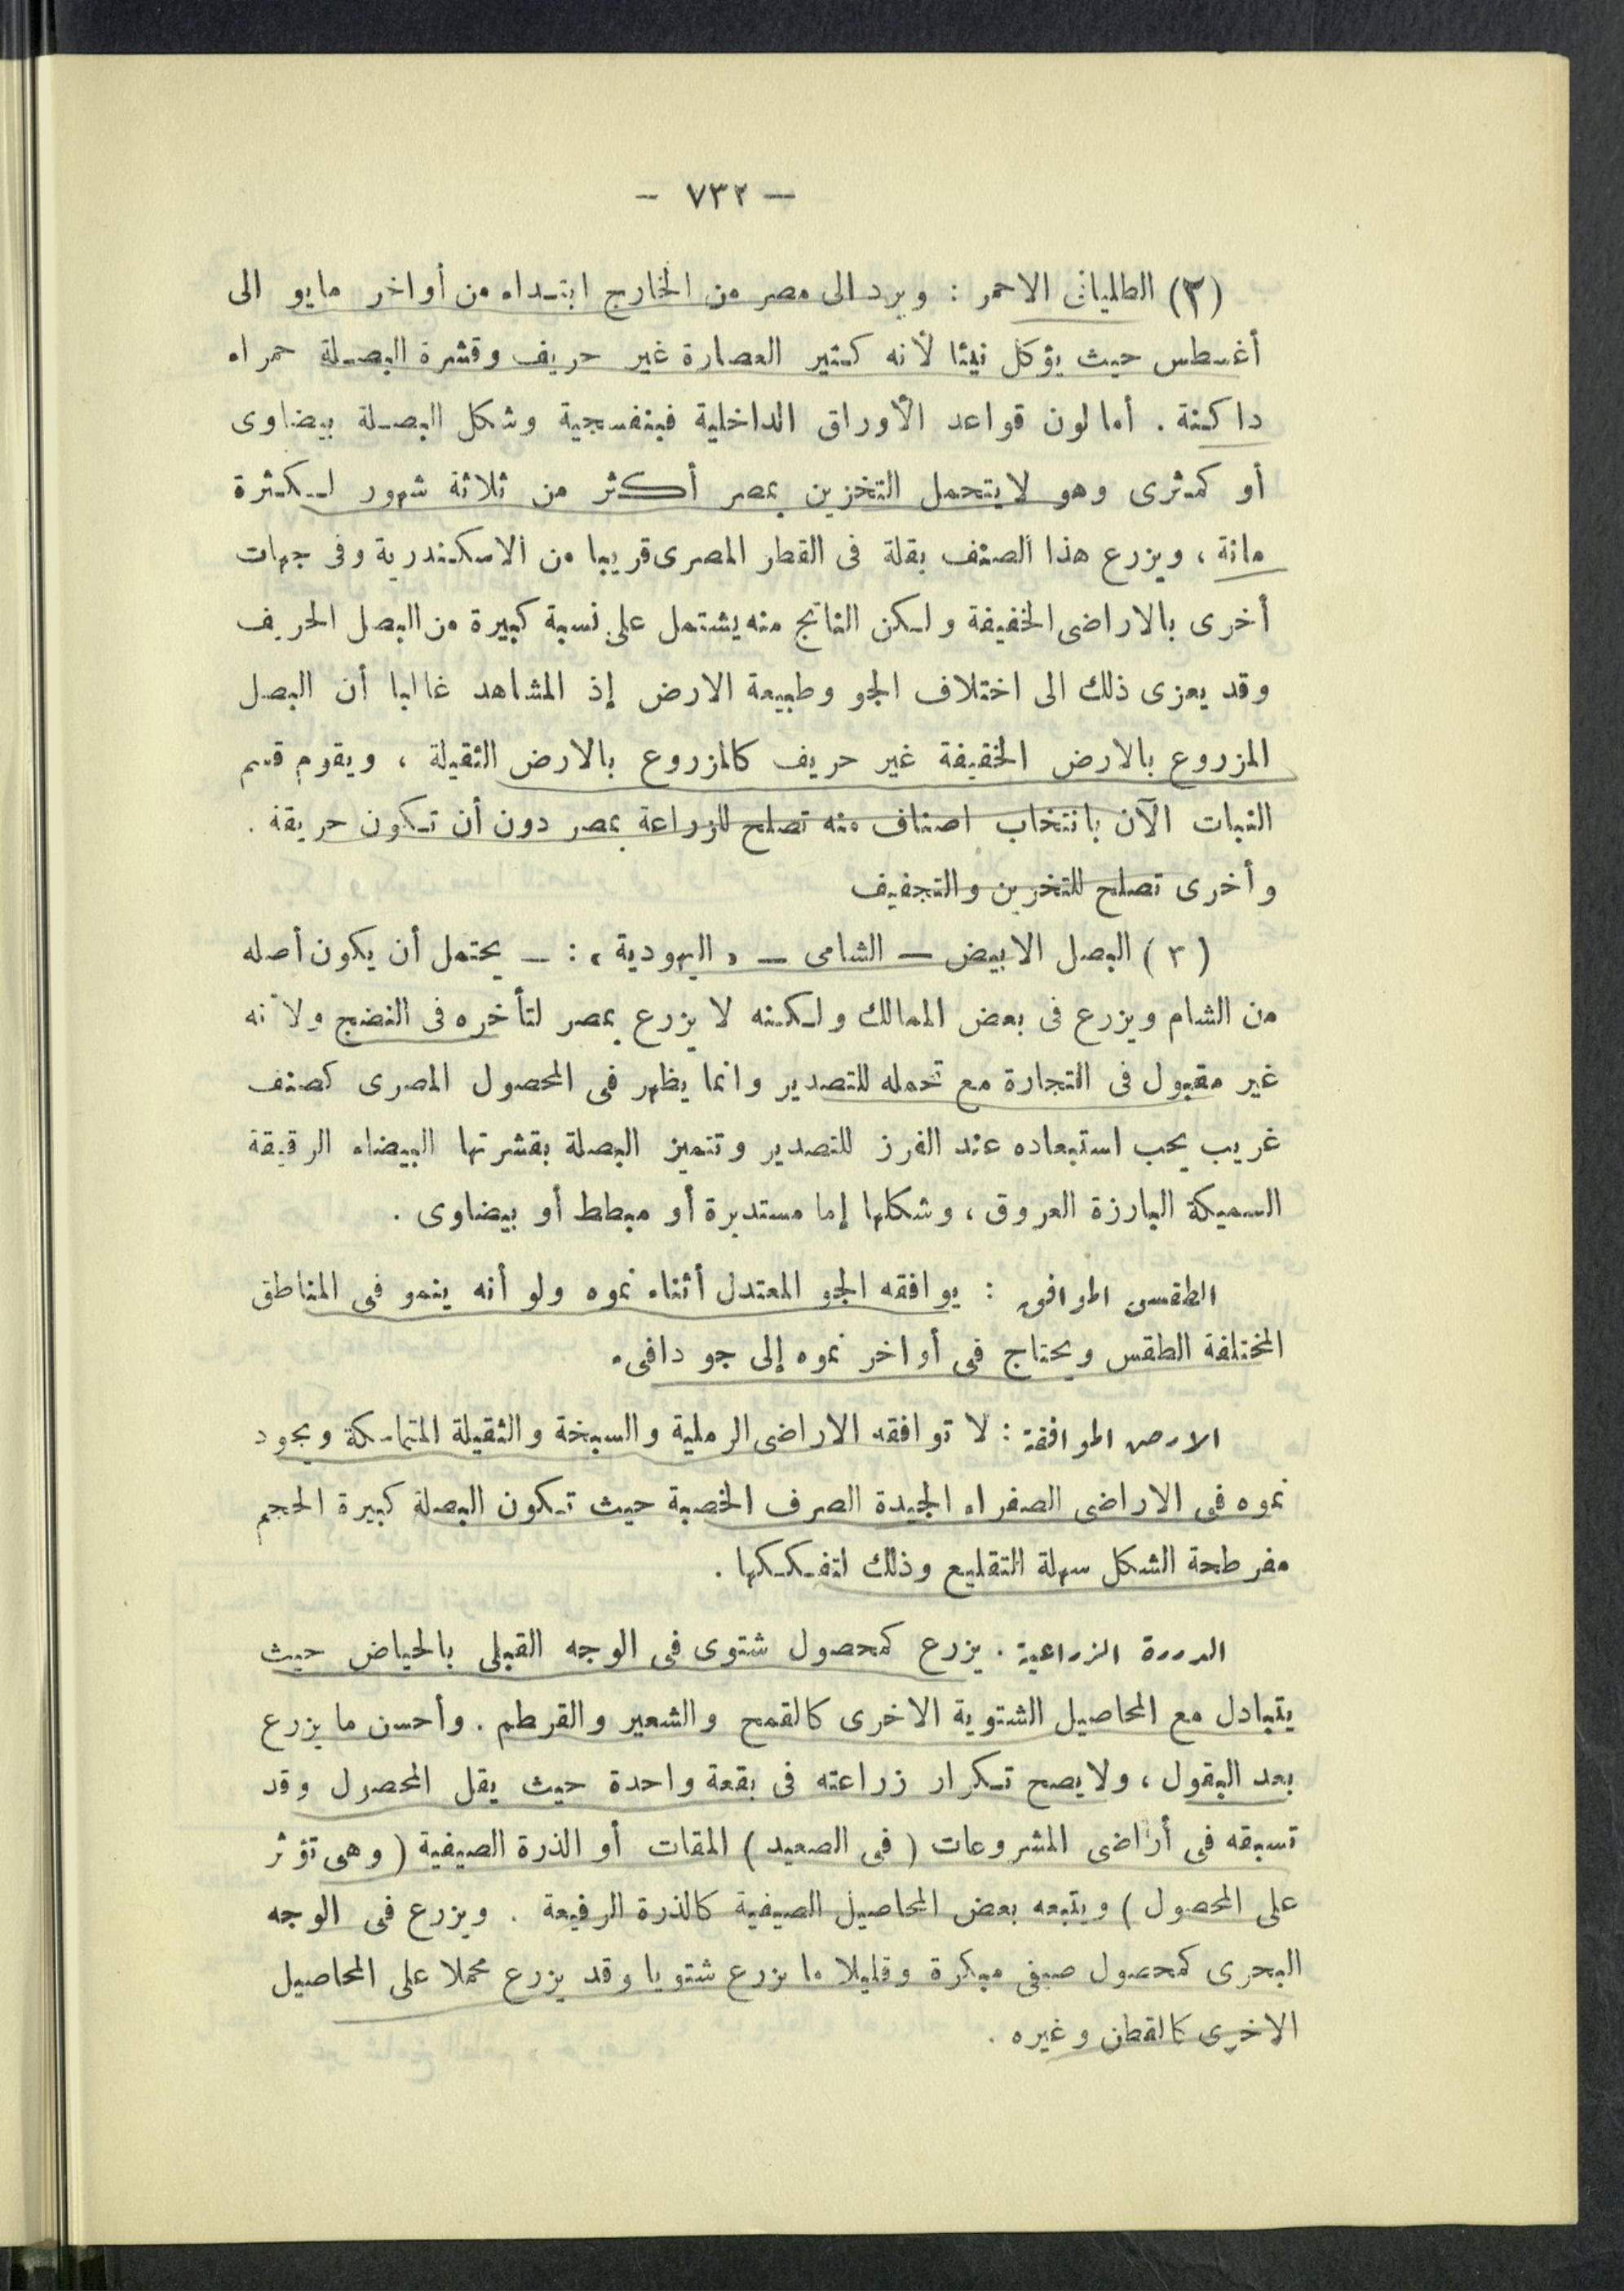 — ٧٣٢ —
(٣) الطليانى الاحمر : ويرد الى مصر من الخارج ابتداء من أواخر مايو الى
أغسطس حيث يؤكل نيئا لأنه كثير العصارة غير حريف وقشرة البصلة حمراء
داكنة . أما لون قواعد الأوراق الداخلية فبنفسجية وشكل البصلة بيضاوى
أو كمثرى وهو لا يتحمل التخزين بمصر أكثر من ثلاثة شهور لكثرة
مائة ، ويزرع هذا الصنف بقلة فى القطر المصرى قريبا من الاسكندرية وفى جهات
أخرى بالاراضى الخفيفة ولكن الناتج منه يشتمل على نسبة كبيرة من البصل الحريف
وقد يعزى ذلك الى اختلاف الجو وطبيعة الارض إذ المشاهد غالبا أن البصل
المزروع بالارض الخفيفة غير حريف كالمزروع بالارض الثقيلة ، ويقوم قسم
النبات الآن بانتخاب اصناف منه تصلح للزراعة بمصر دون أن تكون حريفة .
وأخرى تصلح للتخزين والتجفيف
(٣) البصل الابيض — الشامى — « اليهودية » : — يحتمل أن يكون أصله
من الشام ويزرع فى بعض الممالك ولكنه لا يزرع بمصر لتأخره فى النضج ولأنه
غير مقبول فى التجارة مع تحمله للتصدير وانما يظهر فى المحصول المصرى كصنف
غريب يجب استبعاده عند الفرز للتصدير وتتميز البصلة بقشرتها البيضاء الرقيقة
السميكة البارزة العروق ، وشكلها إما مستديرة أو مبطط أو بيضاوى .
الطقس الموافق : يوافقه الجو المعتدل أثناء نموه ولو أنه ينمو فى المناطق
المختلفة الطقس ويحتاج فى أواخر نموه إلى جو دافىء
الارض الموافقة : لا توافقه الاراضى الرملية والسبخة والثقيلة المتماسكة ويجود
نموه فى الاراضى الصفراء الجيدة الصرف الخصبة حيث تكون البصلة كبيرة الحجم
مفرطحة الشكل سهلة التقليع وذلك لتفككها .
الدورة الزراعية . يزرع كمحصول شتوى فى الوجه القبلى بالحياض حيث
يتبادل مع المحاصيل الشتوية الاخرى كالقمح والشعير والقرطم . وأحسن ما يزرع
بعد البقول ، ولا يصح تكرار زراعته فى بقعة واحدة حيث يقل المحصول وقد
تسبقه فى أراضى المشروعات ( فى الصعيد ) المقات أو الذرة الصيفية ( وهى تؤثر
على المحصول ) ويتبعه بعض المحاصيل الصيفية كالذرة الرفيعة . ويزرع فى الوجه
البحرى كمحصول صيفى مبكرة وقليلا ما يزرع شتويا وقد يزرع محملا على المحاصيل
الاخرى كالقطن وغيره .